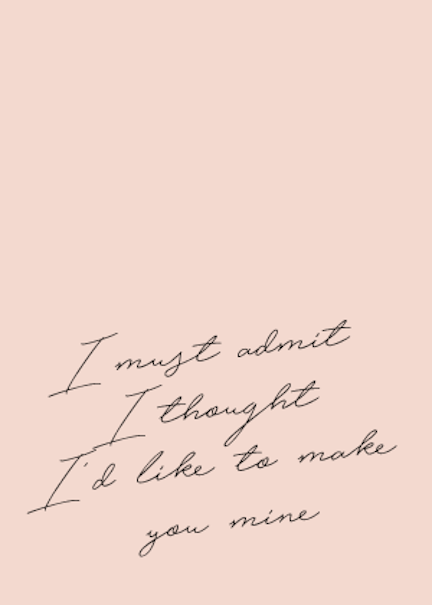 I must admit
I thought
I'd like to make
you mine